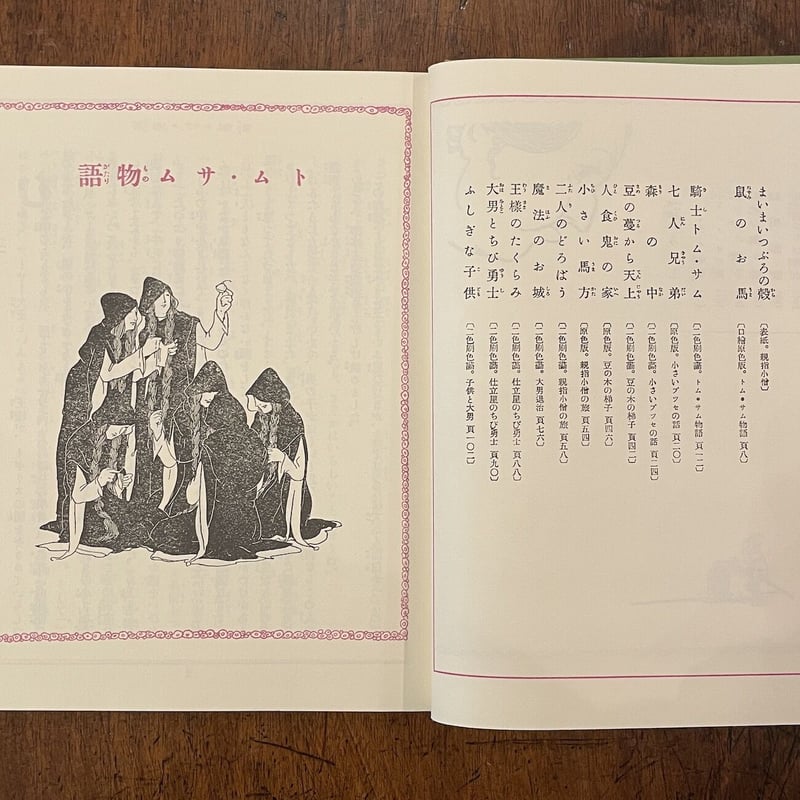 まいまいつぶろの殻〔表紙。親指小僧〕
鼠のお馬〔口繪原色版。トム・サム物語 頁八〕
騎士トム・サム〔二色刷色畵。トム・サム物語 頁一二〕
七人兄弟〔原色版。小さいプツセの話 頁二〇〕
森の中〔二色刷色畵。小さいプツセの話 頁二四〕
豆の蔓から天上〔二色刷色畵。豆の木の梯子 頁四二〕
人食鬼の家〔原色版。豆の木の梯子 頁四六〕
小さい馬方〔原色版。親指小僧の旅 頁五四〕
二人のどろばう〔二色刷色畵。親指小僧の旅 頁五八〕
魔法のお城〔二色刷色畵。大男退治 頁七六〕
王樣のたくらみ〔二色刷色畵。仕立屋のちび勇士 頁八八〕
大男とちび勇士〔二色刷色畵。仕立屋のちび勇士 頁九〇〕
ふしぎな子供〔二色刷色畵。子供と大男 頁一〇二〕
トム・サム物語